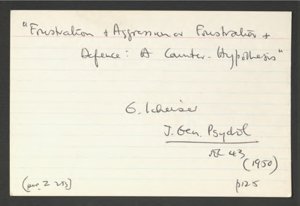 "Frustration + Aggression or Frustration +
Defence: A Counter-Hypothesis"
G. Icheiser
J. Gen. Psychol
43
(1950)
p125